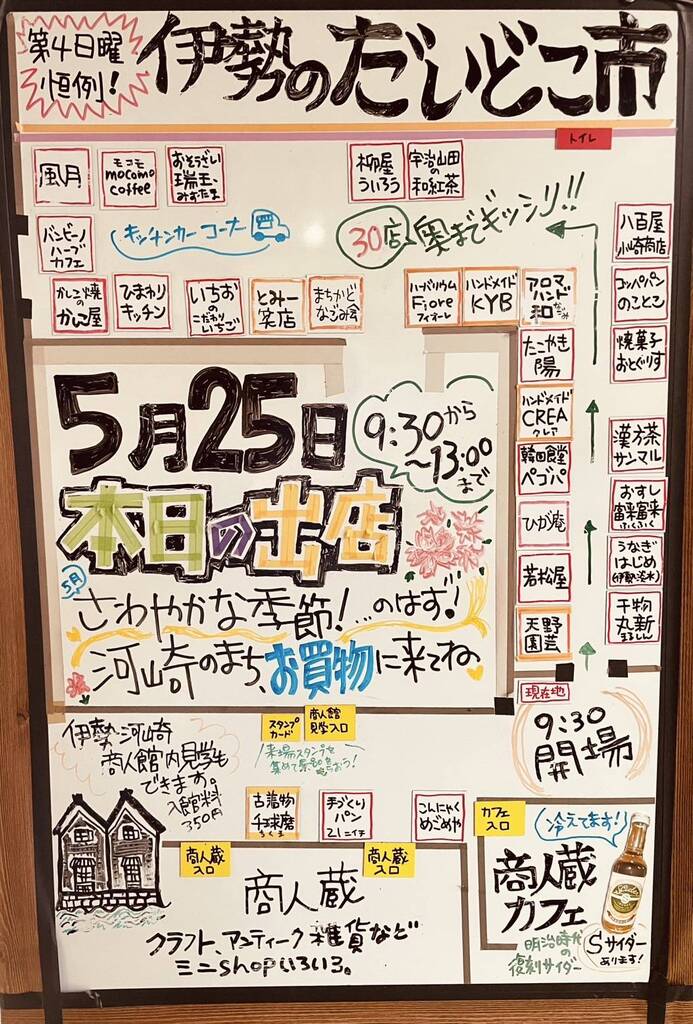 第4日曜
恒例!
伊勢のだいどこ市
トイレ
風月
モコモ
mocomo
coffee
おそうざい
瑞玉
みずたま
柳屋
ういろう
宇治山田
の
和紅茶
バンビーノ
ハーブ
カフェ
キッチンカーコーナー
30店
奥までギッシリ!!
八百屋
小崎商店
かしこ焼
の
かしこ屋
ひまわり
キッチン
いちお
の
こだわり
いちご
とみー
笑店
まちかど
なごみ会
ハーバリウム
Fiore
フィオーレ
ハンドメイド
KYB
アロマ
ハンド
和なごみ
コッパパン
のことこ
たこやき
陽
焼菓子
おとぐりす
ハンドメイド
CREA
クレア
韓国食堂
ペゴパ
漢方茶
サンマル
ひが庵
おすし
富来富来
ふくふく
若松屋
うなぎ
はじめ
(伊勢淡水)
天野
園芸
干物
丸新
まるしん
5月25日
9:30から
~13:00
まで
本日の出店
5月
さわやかな季節!…のはず!
河崎のまち、お買物に来てね
現在地
9:30
開場
伊勢河崎
商人館内見学も
できます。
入館料
350円
スタンプ
カード
商人館
見学入口
来場スタンプを
集めて景品をもらおう!
古着物
千球磨
ちくま
手づくり
パン
こんにゃく
めごめや
カフェ
入口
冷えてます!
商人蔵
入口
商人蔵
入口
商人蔵
クラフト、アンティーク雑貨など
ミニshopいろいろ。
商人蔵
カフェ
明治時代
の
復刻サイダー
Sサイダー
あります!